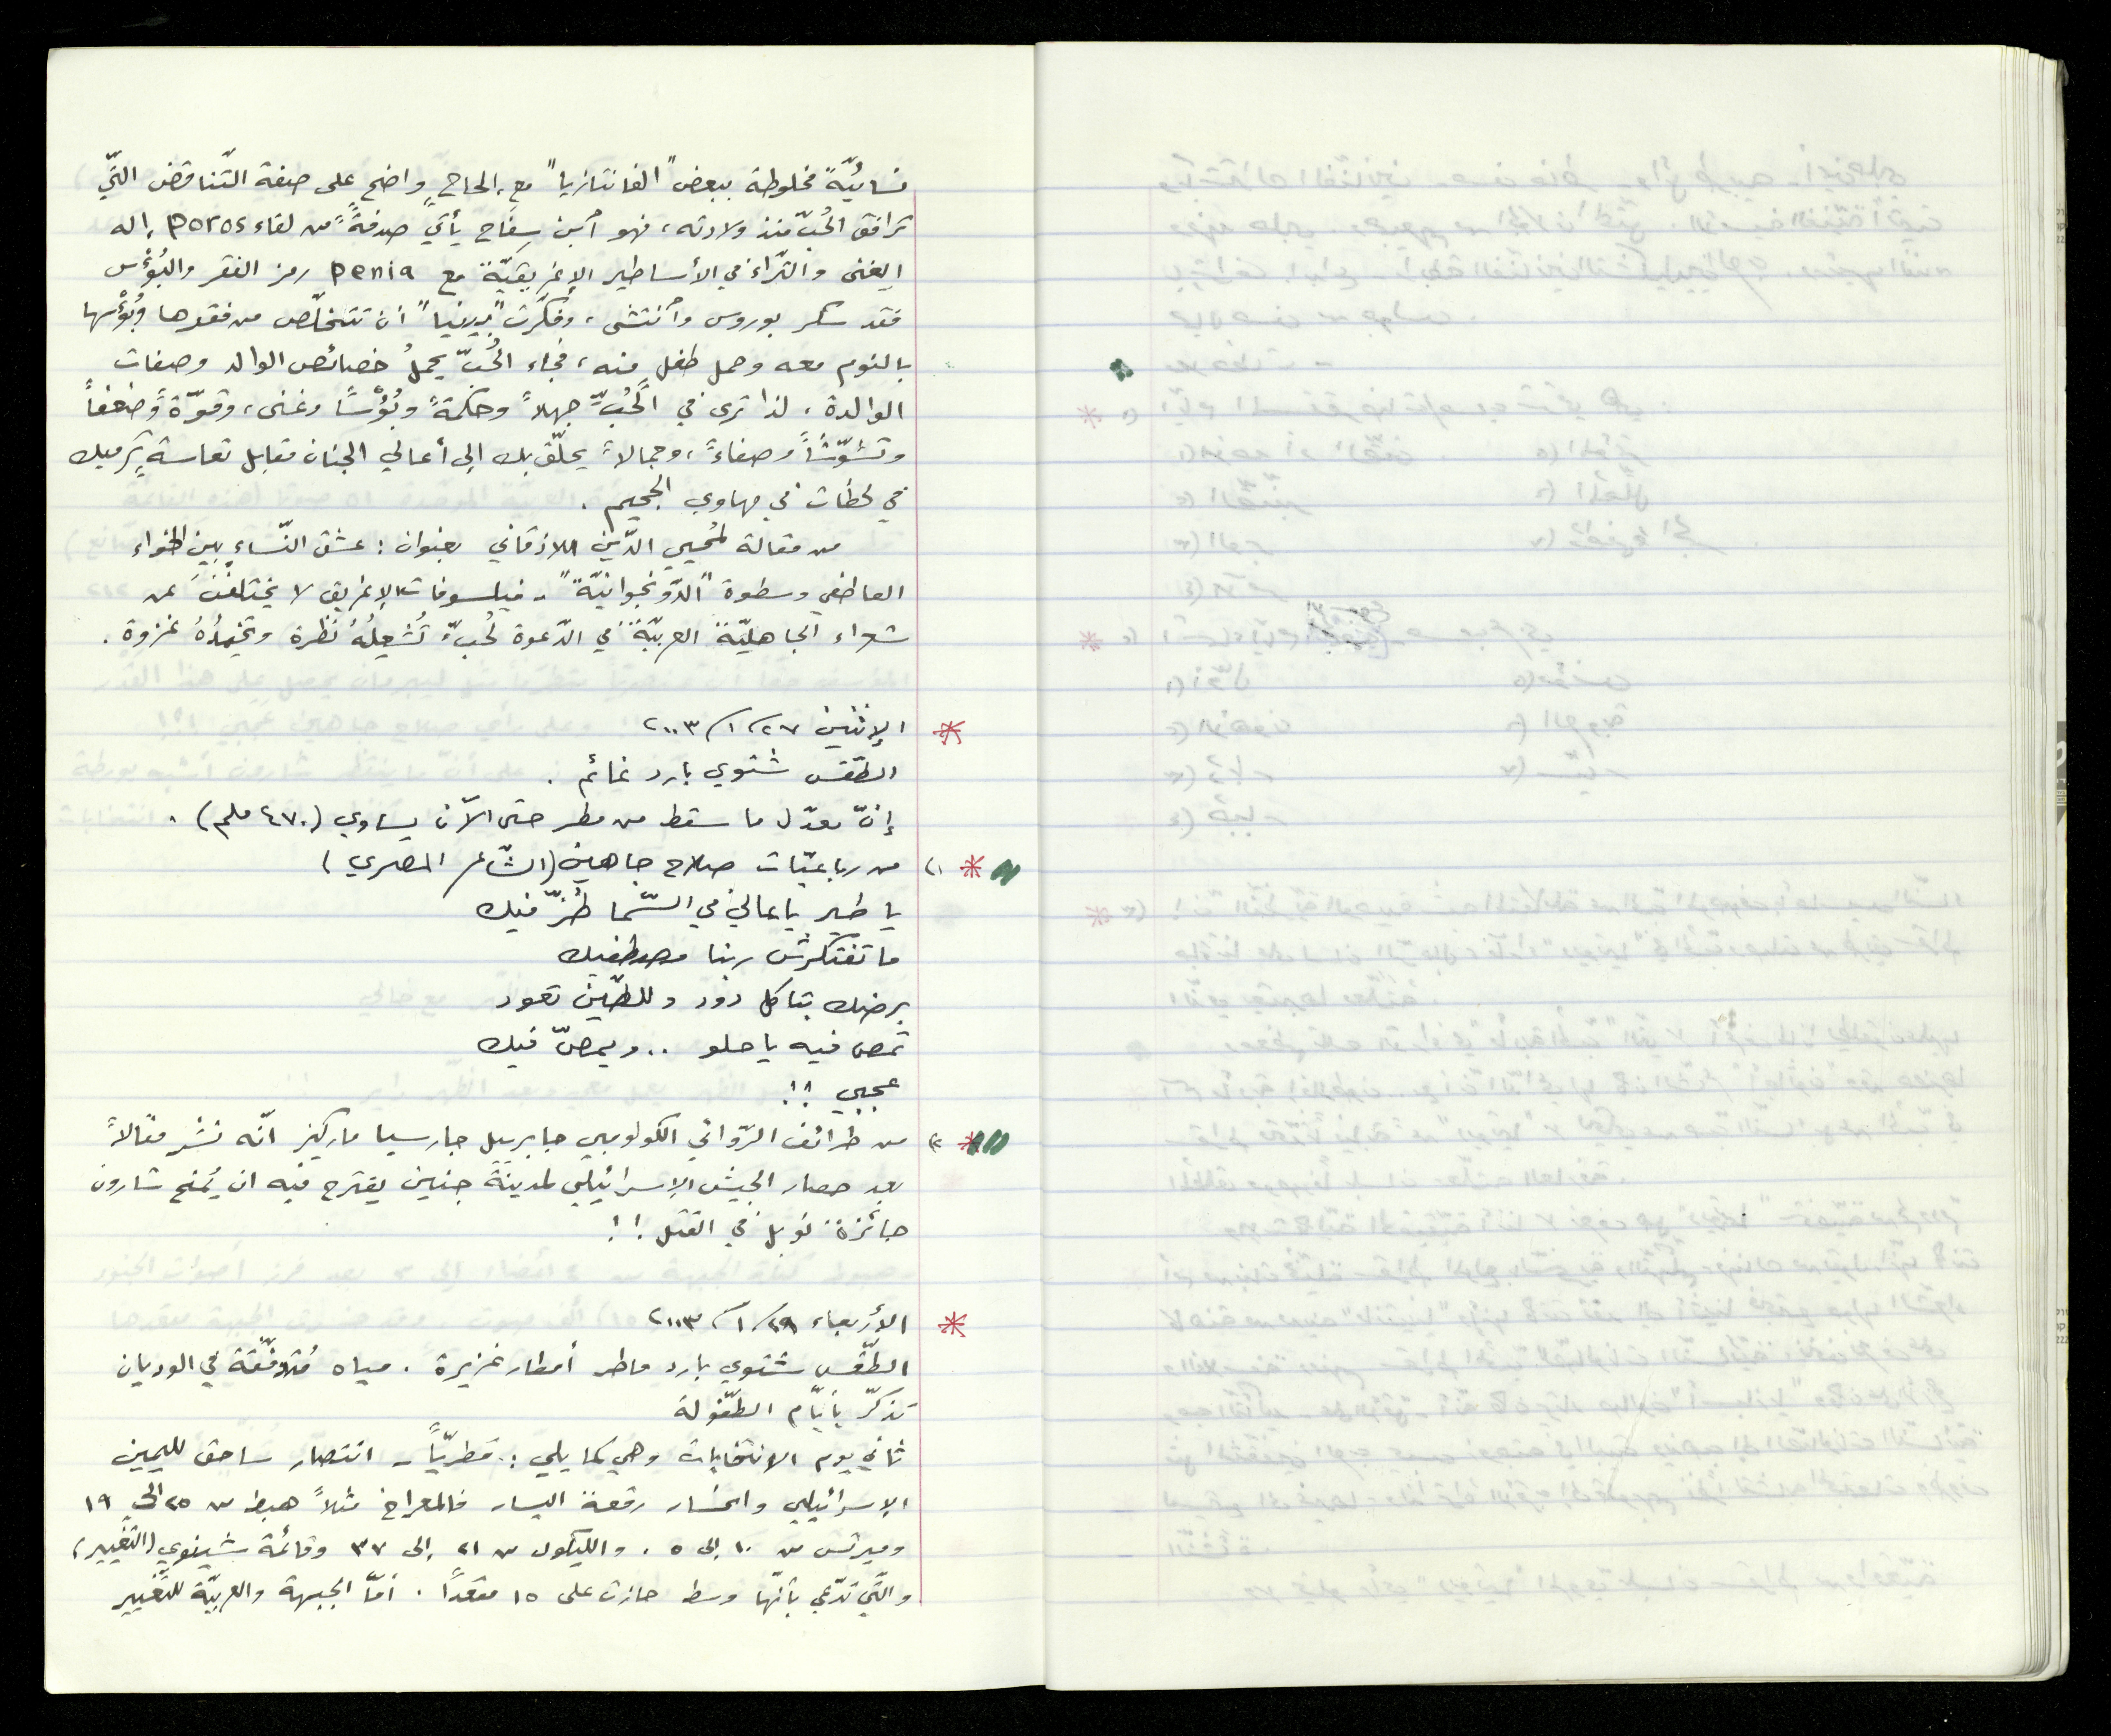 نسائيّة مخلوطة ببعض "الفانتازيا" مع إلحاح واضح على صفة التّناقض التّي
ترافق الحُبّ منذ ولادته، فهو ابن سِفاح يأتي صدفةً من لقاء poros إله
الغنى والثّراء في الأساطير الإغريقيّة مع penia رمز الفقر والبُؤْس
فقد سكر بوروس وانتشى، وفكّرت "بيرنيا" أن تتخلّص من فقرها وبُؤْسها
بالنوم معه وحمل طفل منه، فجاء الحُبّ يحملُ خصائص الوالد وصفات
الوالدة، لذا ترى في الحُبّ جهلاً وحكمةً وبُؤْسًا وغنى، وقوّةً وضعفاً
وتشوّشاً وصفاءً، وجمالاً يحلّق بك إلى أعالي الجنان مقابل تعاسة ترميك
في لحظات في مهاوي الجحيم.
من مقالة لمُحيي الدّين اللاذقاني بعنوان: عشق النّساء بين الخواء
العاطفي وسطوة "الدّونجوانيّة" - فيلسوفات الإغريق لا يختلفْنَ عن
شعراء الجاهليّة العربيّة في الدّعوة لحُبّ تُشعِلُهُ نظرة وتخمِدُهُ غزوة.
* الإثنين ٢٧/١/٢٠٠٣
الطّقس شتوي بارد غائم.
إنّ معدّل ما سقط من مطر حتى الآن يساوي (٤٧٠ ملم).
* ١) من رباعيّات صلاح جاهين (الشّاعر المصري)
يا طير يا عالي في السّما طُزّ فيك
ما تفتكرش ربنا مصطفيك
برضك بتاكل دود وللطّين تعود
تمص فيه يا حلو .. ويمصّ فيك
عجبي !!
* ٢) من طرائف الرّوائي الكولومبي جابرييل جارسيا ماركيز انّه نشر مقالاً
بعد حصار الجيش الإسرائيلي لمدينة جنين يقترح فيه ان يُمنح شارون
جائزة نوبل في القتل !!
* الأربعاء ٢٩/١/٢٠٠٣
الطّقس شتوي بارد ماطر أمطار غزيرة. مياه مُتدفّقة في الوديان
تذكّر بأيّام الطّفولة
ثاني يوم الانتخابات وهي كما يلي: قطريّاً - انتصار ساحق لليمين
الإسرائيلي وانحسار رقعة اليسار فالمعراخ مثلاً هبط من ٢٥ الى ١٩
وميرتس من ١٠ إلى ٥. والليكود من ٢١ إلى ٣٧ وقائمة شينوي (التغيير)
والتّي تدّعي بأنّها وسط حازت على ١٥ مقعداً. أمّا الجبهة والعربيّة للتّغيير